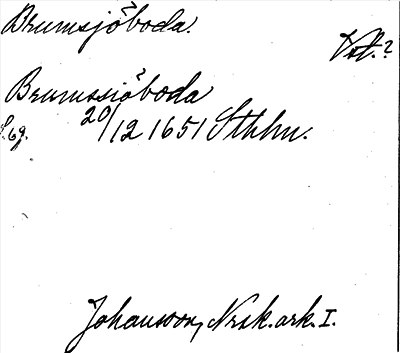 Brumsjöboda.
Vstl.?
Brumssiöboda
S. 69. 20/12 1651 Sthlm.
Johansson, Nrsk. ark. I.